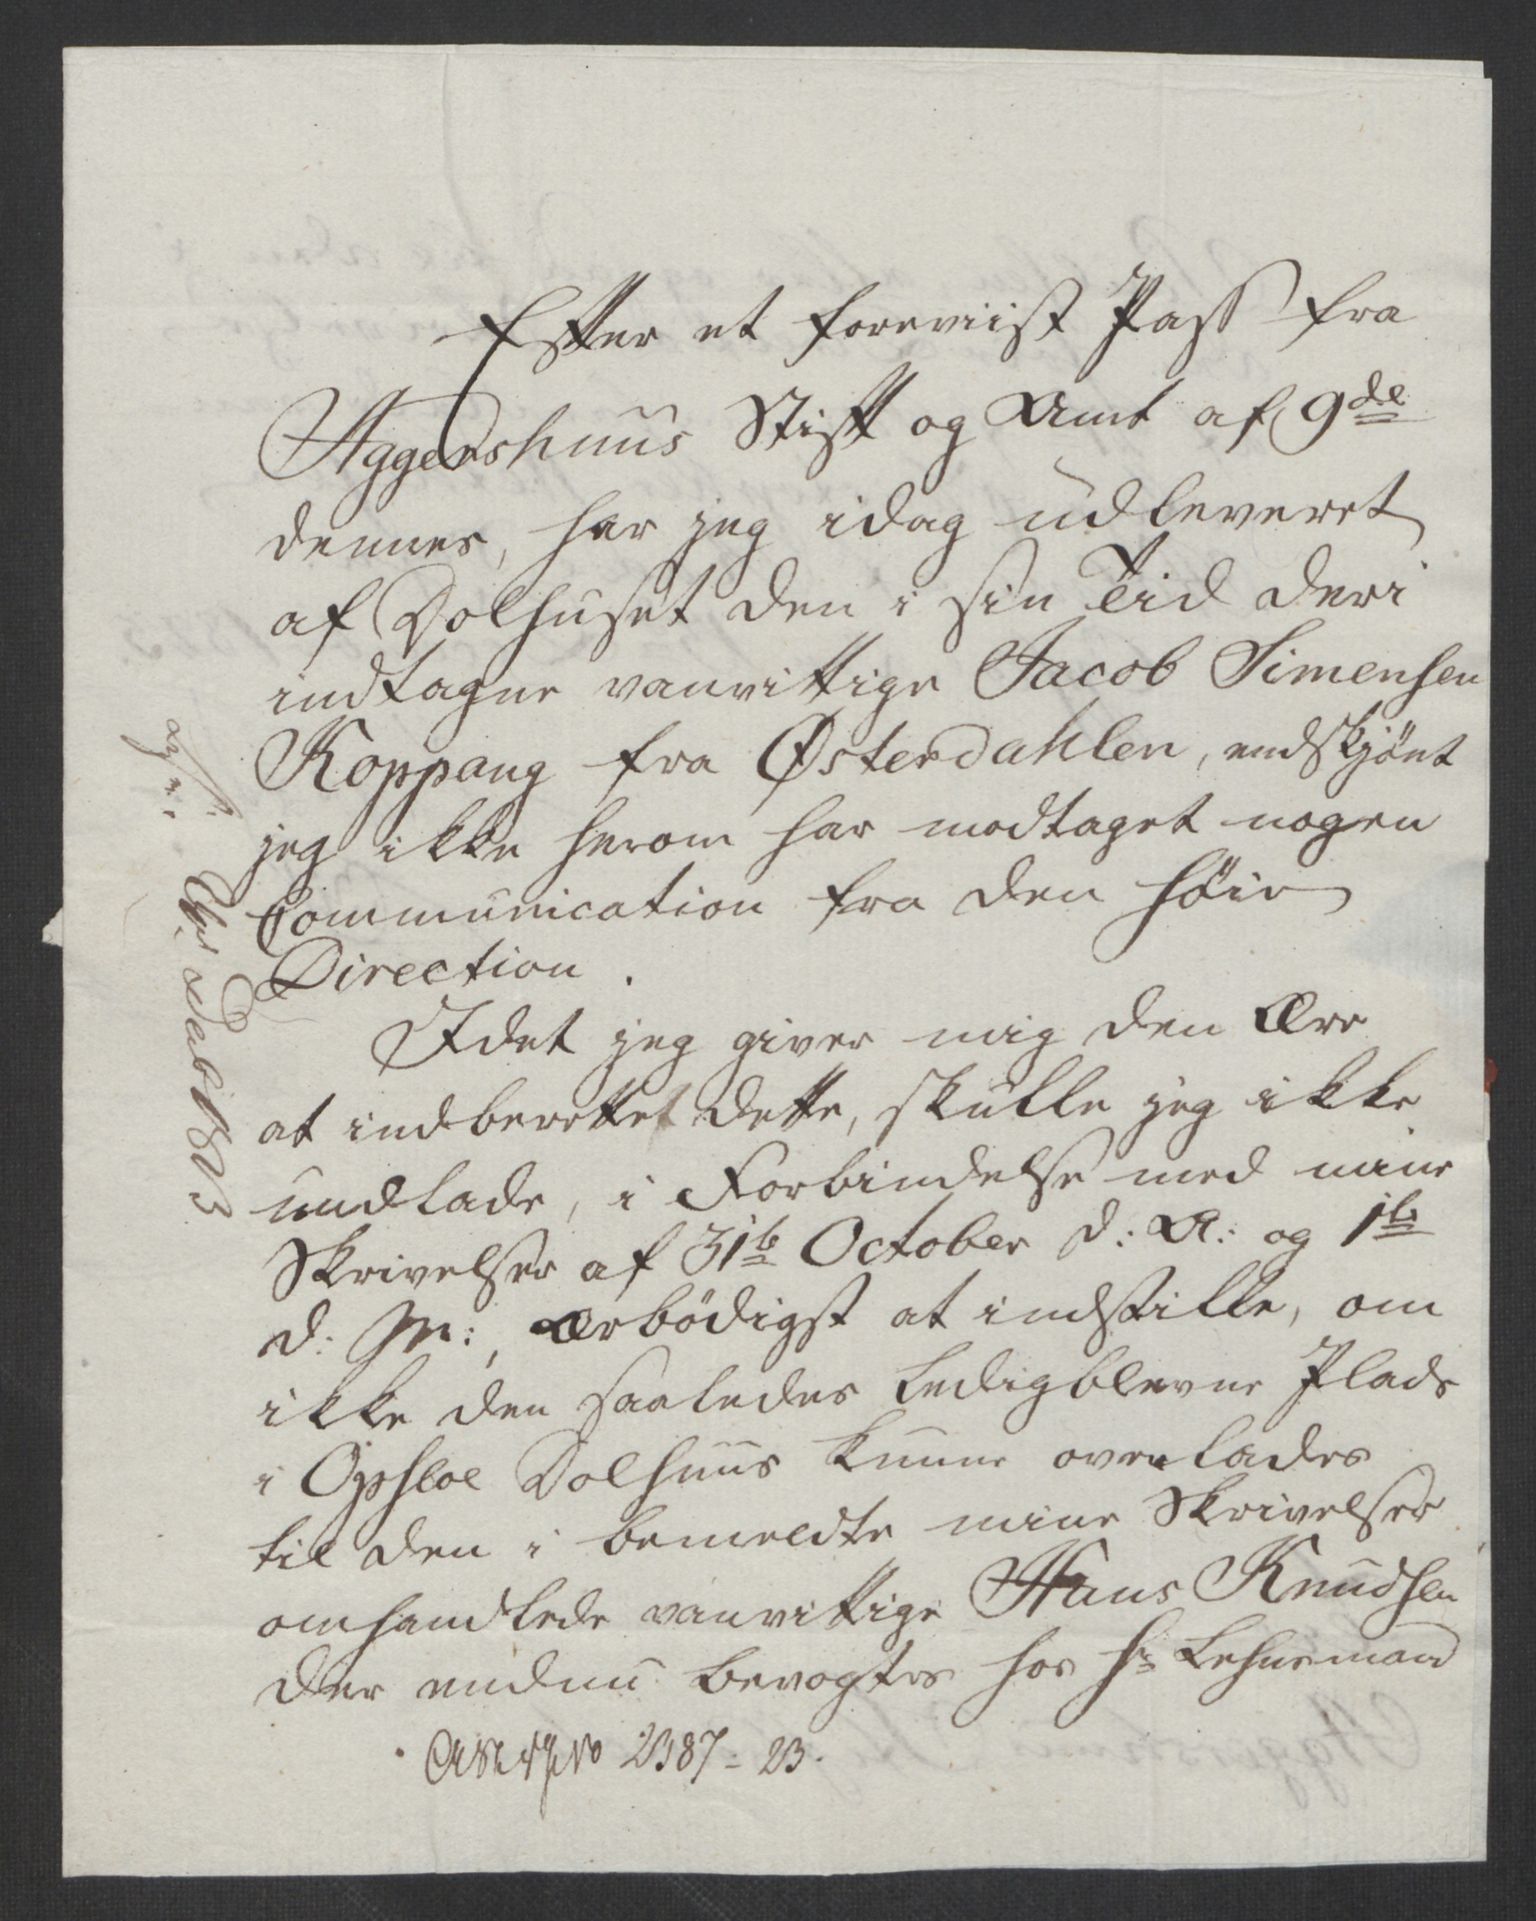 Efter et foreviist Pass fra
Aggershuus Stift og Amt af 9de
dennes, har jeg idag udleveret
af Dolhuset den i sin Tid deri
indtagne vanvittige Jacob Simensen
Koppang fra Østerdahlen, endskjönt
jeg ikke herom har modtaget nogen
Communication fra den höie
Direction.
Idet jeg giver mig den Ære
at indberettet dette, skulle jeg ikke
undlade, i Forbindelse med mine
Skrivelser af 31te October d: A: og 1te
d: M:, ærbödigst at indstille, om
ikke den saaledes ledigblevne Plads
i Opsloe Dolhuus kunne overlades
til den i bemeldte mine Skrivelser
omhandlede vanvittige Hans Knudsen
der endnu bevogtes hos Hr Lehnsmand
2387 - 23.